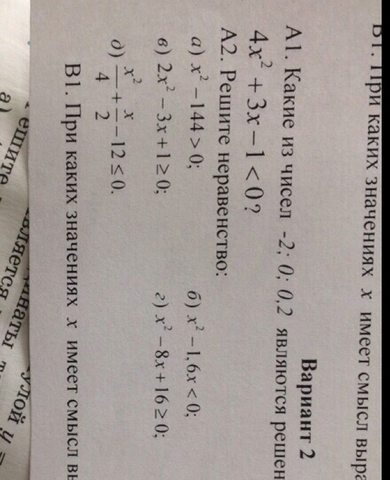 В1. При каких значениях x имеет смысл выра
Вариант 2
А1. Какие из чисел -2; 0; 0,2 являются решен
4x² + 3x − 1 < 0?
А2. Решите неравенство:
а) x² − 144 > 0; б) x² − 1,6x < 0;
в) 2x² − 3x + 1 ≥ 0; г) x² − 8x + 16 ≥ 0;
д) x²/4 + x/2 − 12 ≤ 0.
В1. При каких значениях x имеет смысл вы